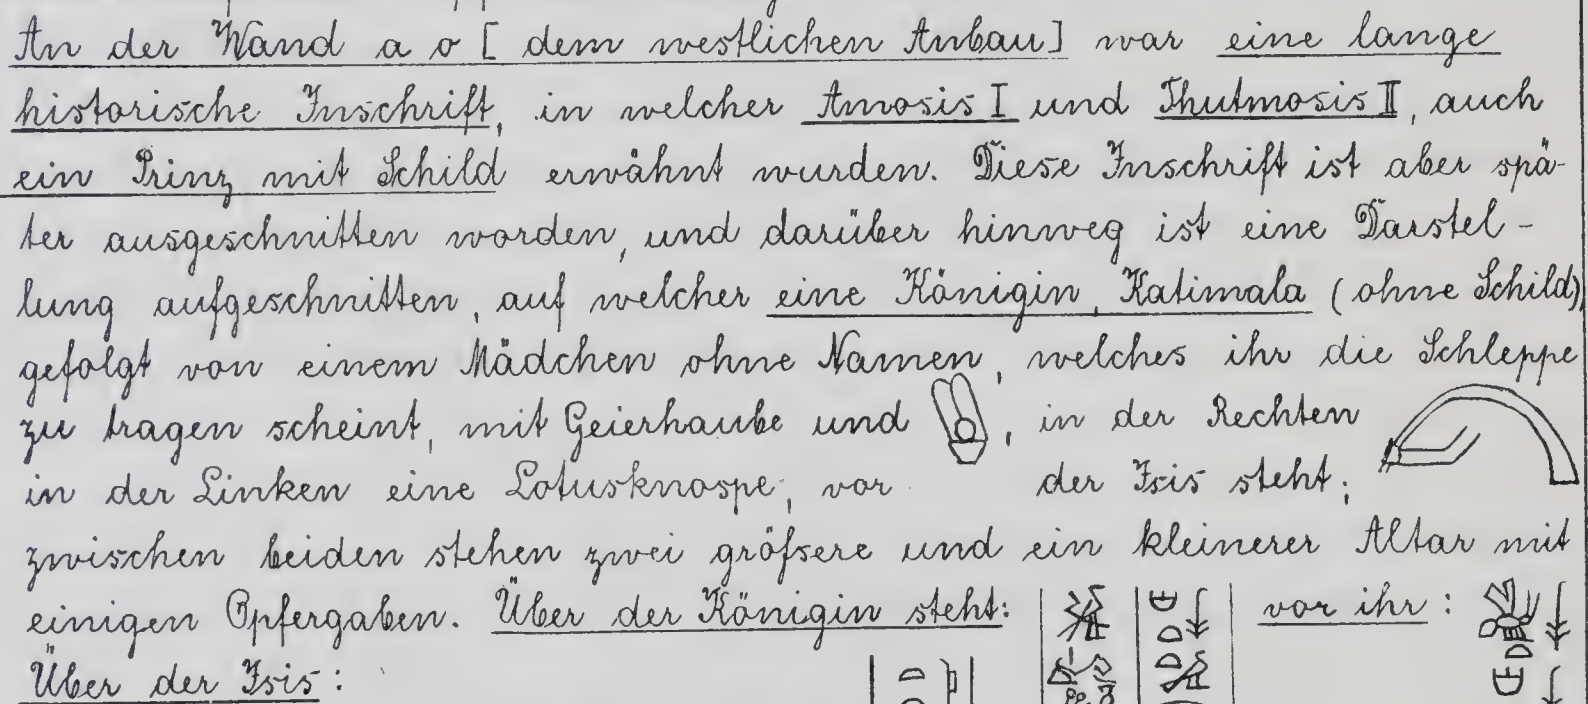 An der Wand a o [dem westlichen Anbau] war eine lange
historische Inschrift, in welcher Amosis I und Thutmosis II, auch
ein Prinz mit Schild erwähnt wurden. Diese Inschrift ist aber spä-
ter ausgeschnitten worden, und darüber hinweg ist eine Darstel-
lung aufgeschnitten, auf welcher eine Königin, Katimala (ohne Schild),
gefolgt von einem Mädchen ohne Namen, welches ihr die Schleppe
zu tragen scheint, mit Geierhaube und , in der Rechten
in der Linken eine Lotusknospe, vor der Isis steht;
zwischen beiden stehen zwei größere und ein kleinerer Altar mit
einigen Opfergaben. Über der Königin steht: vor ihr:
Über der Isis: